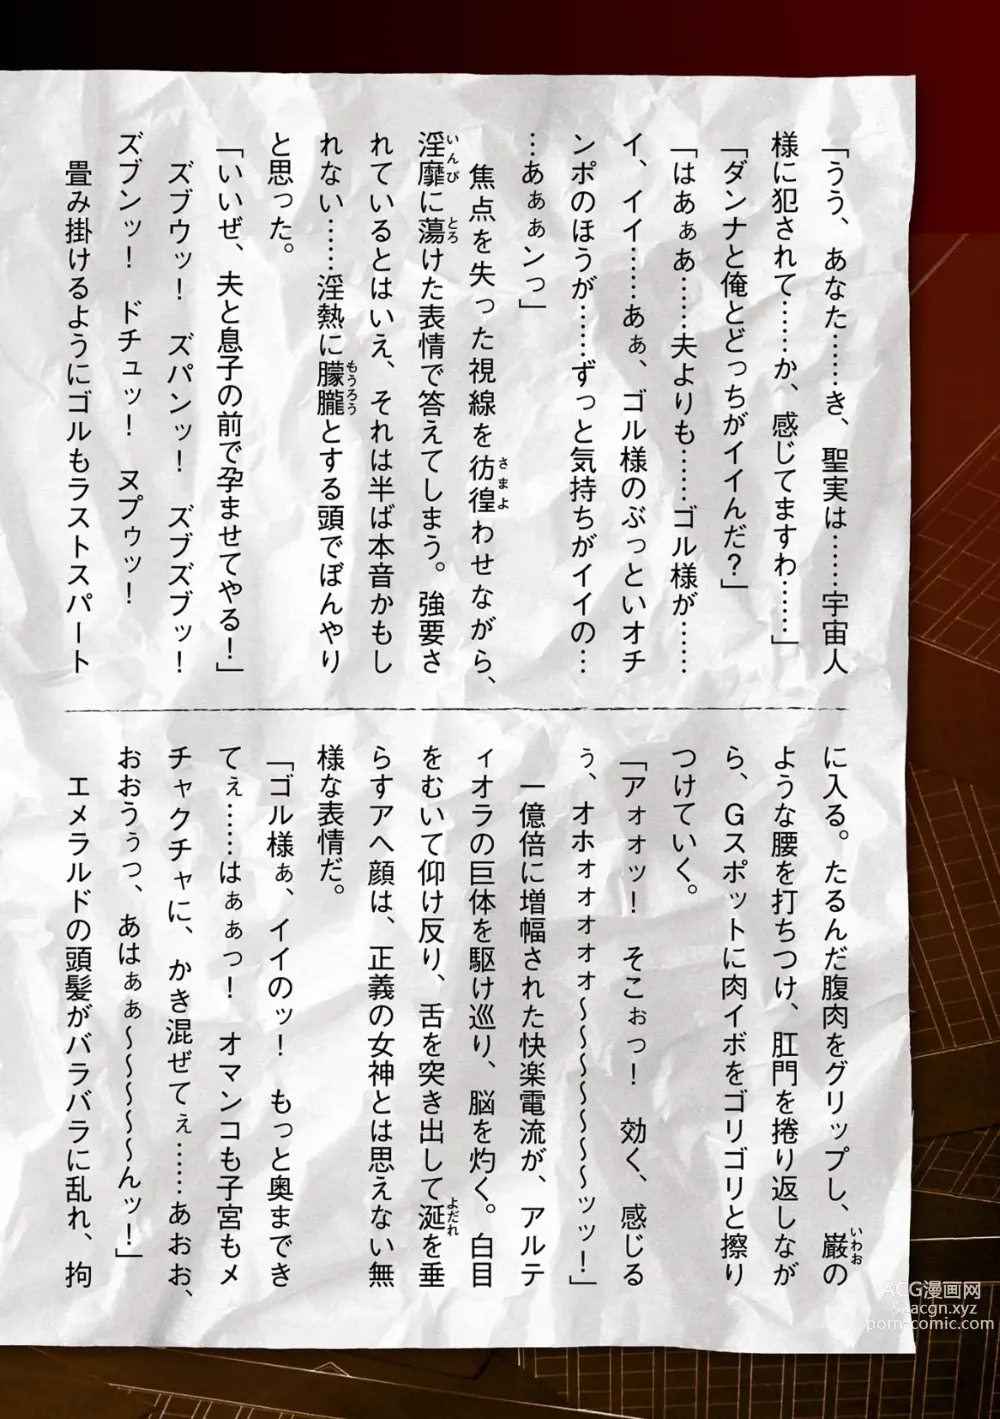 「うう、あなた……き、聖実は……宇宙人
様に犯されて……か、感じてますわ……」
「ダンナと俺とどっちがイイんだ？」
「はあぁあ……夫よりも……ゴル様が……
イ、イイ……あぁ、ゴル様のぶっといオチ
ンポのほうが……ずっと気持ちがイイの…
…あぁぁンっ」
　焦点を失った視線を彷徨わせながら、
淫靡に蕩けた表情で答えてしまう。強要さ
れているとはいえ、それは半ば本音かもし
れない……淫熱に朦朧とする頭でぼんやり
と思った。
「いいぜ、夫と息子の前で孕ませてやる！」
　ズブウッ！　ズパンッ！　ズブズブッ！
ズブンッ！　ドチュッ！　ヌプゥッ！
　畳み掛けるようにゴルもラストスパート
に入る。たるんだ腹肉をグリップし、巌の
ような腰を打ちつけ、肛門を捲り返しなが
ら、Gスポットに肉イボをゴリゴリと擦り
つけていく。
「アォォッ！　そこぉっ！　効く、感じる
ぅ、オホォォォォォ〜〜〜〜〜〜〜ッッ！」
　一億倍に増幅された快楽電流が、アルテ
ィオラの巨体を駆け巡り、脳を灼く。白目
をむいて仰け反り、舌を突き出して涎を垂
らすアヘ顔は、正義の女神とは思えない無
様な表情だ。
「ゴル様ぁ、イイのッ！　もっと奥まできてぇ……はぁぁっ！　オマンコも子宮もメ
チャクチャに、かき混ぜてぇ……あおお、
おおうぅっ、あはぁぁ〜〜〜〜〜んッ！」
　エメラルドの頭髪がバラバラに乱れ、拘
いんび
とろ
さまよ
もうろう
いわお
よだれ
ACG漫画网
szacgn.xyz
porn-comic.com